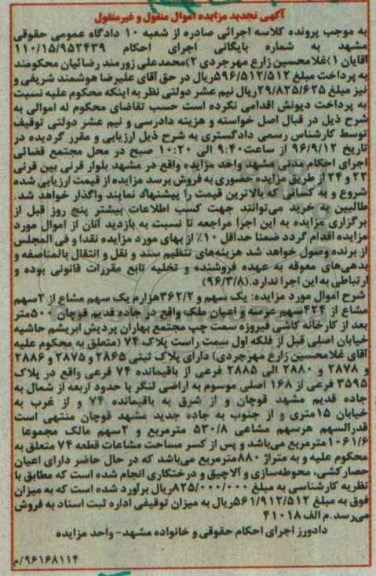 آگهی تجدید مزایده اموال منقول و غیرمنقول
به موجب پرونده کلاسه اجرائی صادره از شعبه ۱۰ دادگاه عمومی حقوقی
مشهد به شماره بایگانی اجرای احکام ۱۱۰/۱۵/۹۵۲۴۳۹
آقایان ۱)غلامحسین زارع مهرجردی ۲)محمدعلی زورمند رضائیان محکومند
به پرداخت مبلغ ۵۹۶/۵۱۲/۵۱۲ریال در حق آقای علیرضا هوشمند شریفی و
نیز مبلغ ۲۹/۸۲۵/۶۲۵ریال نیم عشر دولتی نظر به اینکه محکوم علیه نسبت
به پرداخت دیونش اقدامی نکرده است حسب تقاضای محکوم له اموالی به
شرح ذیل در قبال اصل خواسته و هزینه دادرسی و نیم عشر دولتی توقیف
توسط کارشناس رسمی دادگستری به شرح ذیل ارزیابی و مقرر گردیده در
تاریخ ۹۶/۹/۱۲ از ساعت۹:۴۰ الی ۱۰:۲۰ صبح در محل مجتمع قضائی
اجرای احکام مدنی مشهد واحد مزایده واقع در مشهد بلوار قرنی بین قرنی
۲۲ و ۲۴ از طریق مزایده حضوری به فروش برسد مزایده از قیمت ارزیابی شده
شروع و به کسانی که بالاترین قیمت را پیشنهاد نمایند واگذار خواهد شد.
طالبین به خرید می‌توانند جهت کسب اطلاعات بیشتر پنج روز قبل از
برگزاری مزایده به این اجرا مراجعه تا نسبت به بازدید آنان از اموال مورد
مزایده اقدام گردد ضمنا حداقل ۱۰٪ از بهای مورد مزایده نقدا و فی المجلس
از برنده وصول خواهد شد هزینه‌های تنظیم سند و نقل و انتقال بالمناصفه و
بدهی‌های معوقه به عهده فروشنده و تخلیه تابع مقررات قانونی بوده و
ارتباطی به این اجرا ندارد.(۹۶/۳/۸)
شرح اموال مورد مزایده: یک سهم و ۳۶۲/۲هزارم یک سهم مشاع از ۲سهم
مشاع از ۴۲۴سهم عرصه و اعیان ملک واقع در جاده قدیم قوچان ۵۰۰متر
بعد از کارخانه کاشی فیروزه سمت چپ مجتمع بهاران پردیش ابریشم حاشیه
خیابان اصلی قبل از فلکه اول سمت راست پلاک ۷۴ (متعلق به محکوم علیه
آقای غلامحسین زارع مهرجردی) دارای پلاک ثبتی ۲۸۶۵ و ۲۸۷۵ و ۲۸۸۶
و ۲۸۷۸ و ۲۸۸۰ الی ۲۸۸۵ فرعی از باقیمانده ۷۴ فرعی واقع در پلاک
۳۵۹۵ فرعی از ۱۶۸ اصلی موسوم به اراضی لنگر با حدود اربعه از شمال به
جاده قدیم مشهد قوچان و از شرق به باقیمانده ۷۴ و از غرب به
خیابان ۱۵متری و از جنوب به جاده جدید مشهد قوچان منتهی است
قدرالسهم هرسهم مشاعی ۵۳۰/۸ مترمربع و ۲سهم مالک مجموعا
۱۰۶۱/۶مترمربع می‌باشد و پس از کسر مساحت مشاعات قطعه ۷۴ متعلق به
محکوم علیه و به متراژ ۸۸۰مترمربع می‌باشد که در حال حاضر دارای اعیان
حصارکشی، محوطه‌سازی و آلاچیق و درختکاری انجام شده است که مطابق با
نظریه کارشناسی به مبلغ ۸۲۵/۰۰۰/۰۰۰ریال برآورد شده است که به میزان
فوق به مبلغ ۵۶۱/۹۱۲/۵۱۲ریال به میزان توقیفی اداره ثبت اسناد به فروش
می‌رسد.م الف ۴۱۰۱۸
دادورز اجرای احکام حقوقی و خانواده مشهد- واحد مزایده
۹۶۱۶۸۱۱۴/م